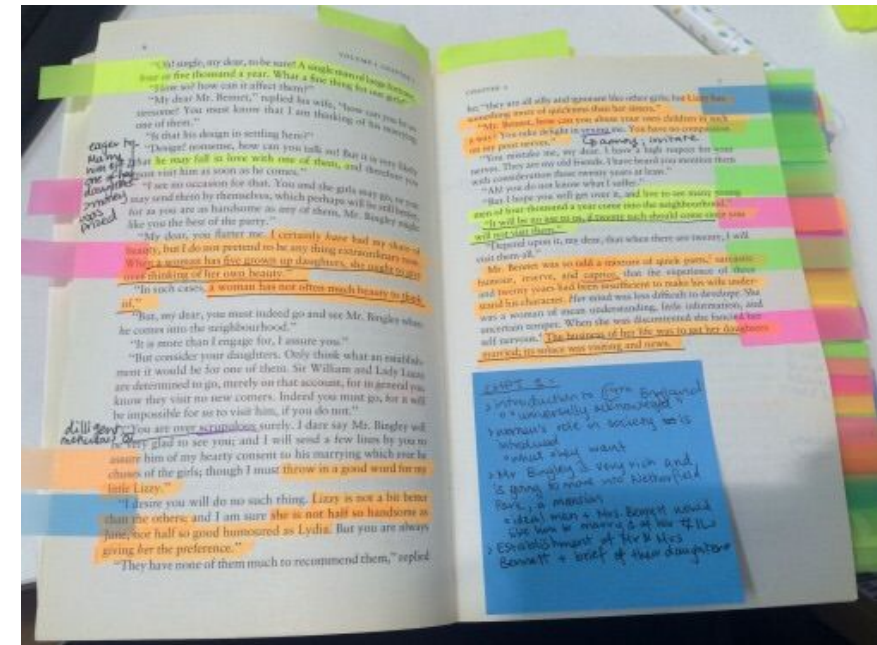 VOLUME I CHAPTER I
"Oh! single, my dear, to be sure! A single man of large fortune;
four or five thousand a year. What a fine thing for our girls!"
"How so? how can it affect them?"
"My dear Mr. Bennet," replied his wife, "how can you be so
tiresome! You must know that I am thinking of his marrying
one of them."
"Is that his design in settling here?"
"Design! nonsense, how can you talk so! But it is very likely
that he may fall in love with one of them, and therefore you
must visit him as soon as he comes."
"I see no occasion for that. You and the girls may go, or you
may send them by themselves, which perhaps will be still better,
for as you are as handsome as any of them, Mr. Bingley might
like you the best of the party."
"My dear, you flatter me. I certainly have had my share of
beauty, but I do not pretend to be any thing extraordinary now.
When a woman has five grown up daughters, she ought to give
over thinking of her own beauty."
"In such cases, a woman has not often much beauty to think
of."
"But, my dear, you must indeed go and see Mr. Bingley when
he comes into the neighbourhood."
"It is more than I engage for, I assure you."
"But consider your daughters. Only think what an establish-
ment it would be for one of them. Sir William and Lady Lucas
are determined to go, merely on that account, for in general you
know they visit no new comers. Indeed you must go, for it will
be impossible for us to visit him, if you do not."
"You are over scrupulous surely. I dare say Mr. Bingley will
be very glad to see you; and I will send a few lines by you to
assure him of my hearty consent to his marrying which ever he
chuses of the girls; though I must throw in a good word for my
little Lizzy."
"I desire you will do no such thing. Lizzy is not a bit better
than the others; and I am sure she is not half so handsome as
Jane, nor half so good humoured as Lydia. But you are always
giving her the preference."
"They have none of them much to recommend them," replied
eager to
marry
one of her
daughters
was
prized
CHAPTER I
he; "they are all silly and ignorant like other girls; but Lizzy has
something more of quickness than her sisters."
"Mr. Bennet, how can you abuse your own children in such
a way? You take delight in vexing me. You have no compassion
on my poor nerves."
annoy, irritate
"You mistake me, my dear. I have a high respect for your
nerves. They are my old friends. I have heard you mention them
with consideration these twenty years at least."
"Ah! you do not know what I suffer."
"But I hope you will get over it, and live to see many young
men of four thousand a year come into the neighbourhood."
"It will be no use to us, if twenty such should come since you
will not visit them."
"Depend upon it, my dear, that when there are twenty, I will
visit them all."
Mr. Bennet was so odd a mixture of quick parts, sarcastic
humour, reserve, and caprice, that the experience of three
and twenty years had been insufficient to make his wife under-
stand his character. Her mind was less difficult to develope. She
was a woman of mean understanding, little information, and
uncertain temper. When she was discontented she fancied her-
self nervous. The business of her life was to get her daughters
married; its solace was visiting and news.
CHPT 1:
> introduction to England
"universally acknowledged"
> women's role in society is
introduced
what they want
> Mr Bingley is very rich and
is going to move into Netherfield
Park, a mansion
ideal man + Mrs Bennett would
like him to marry 1 of her
> Establishment of Mr & Mrs
Bennett + brief of their daughters